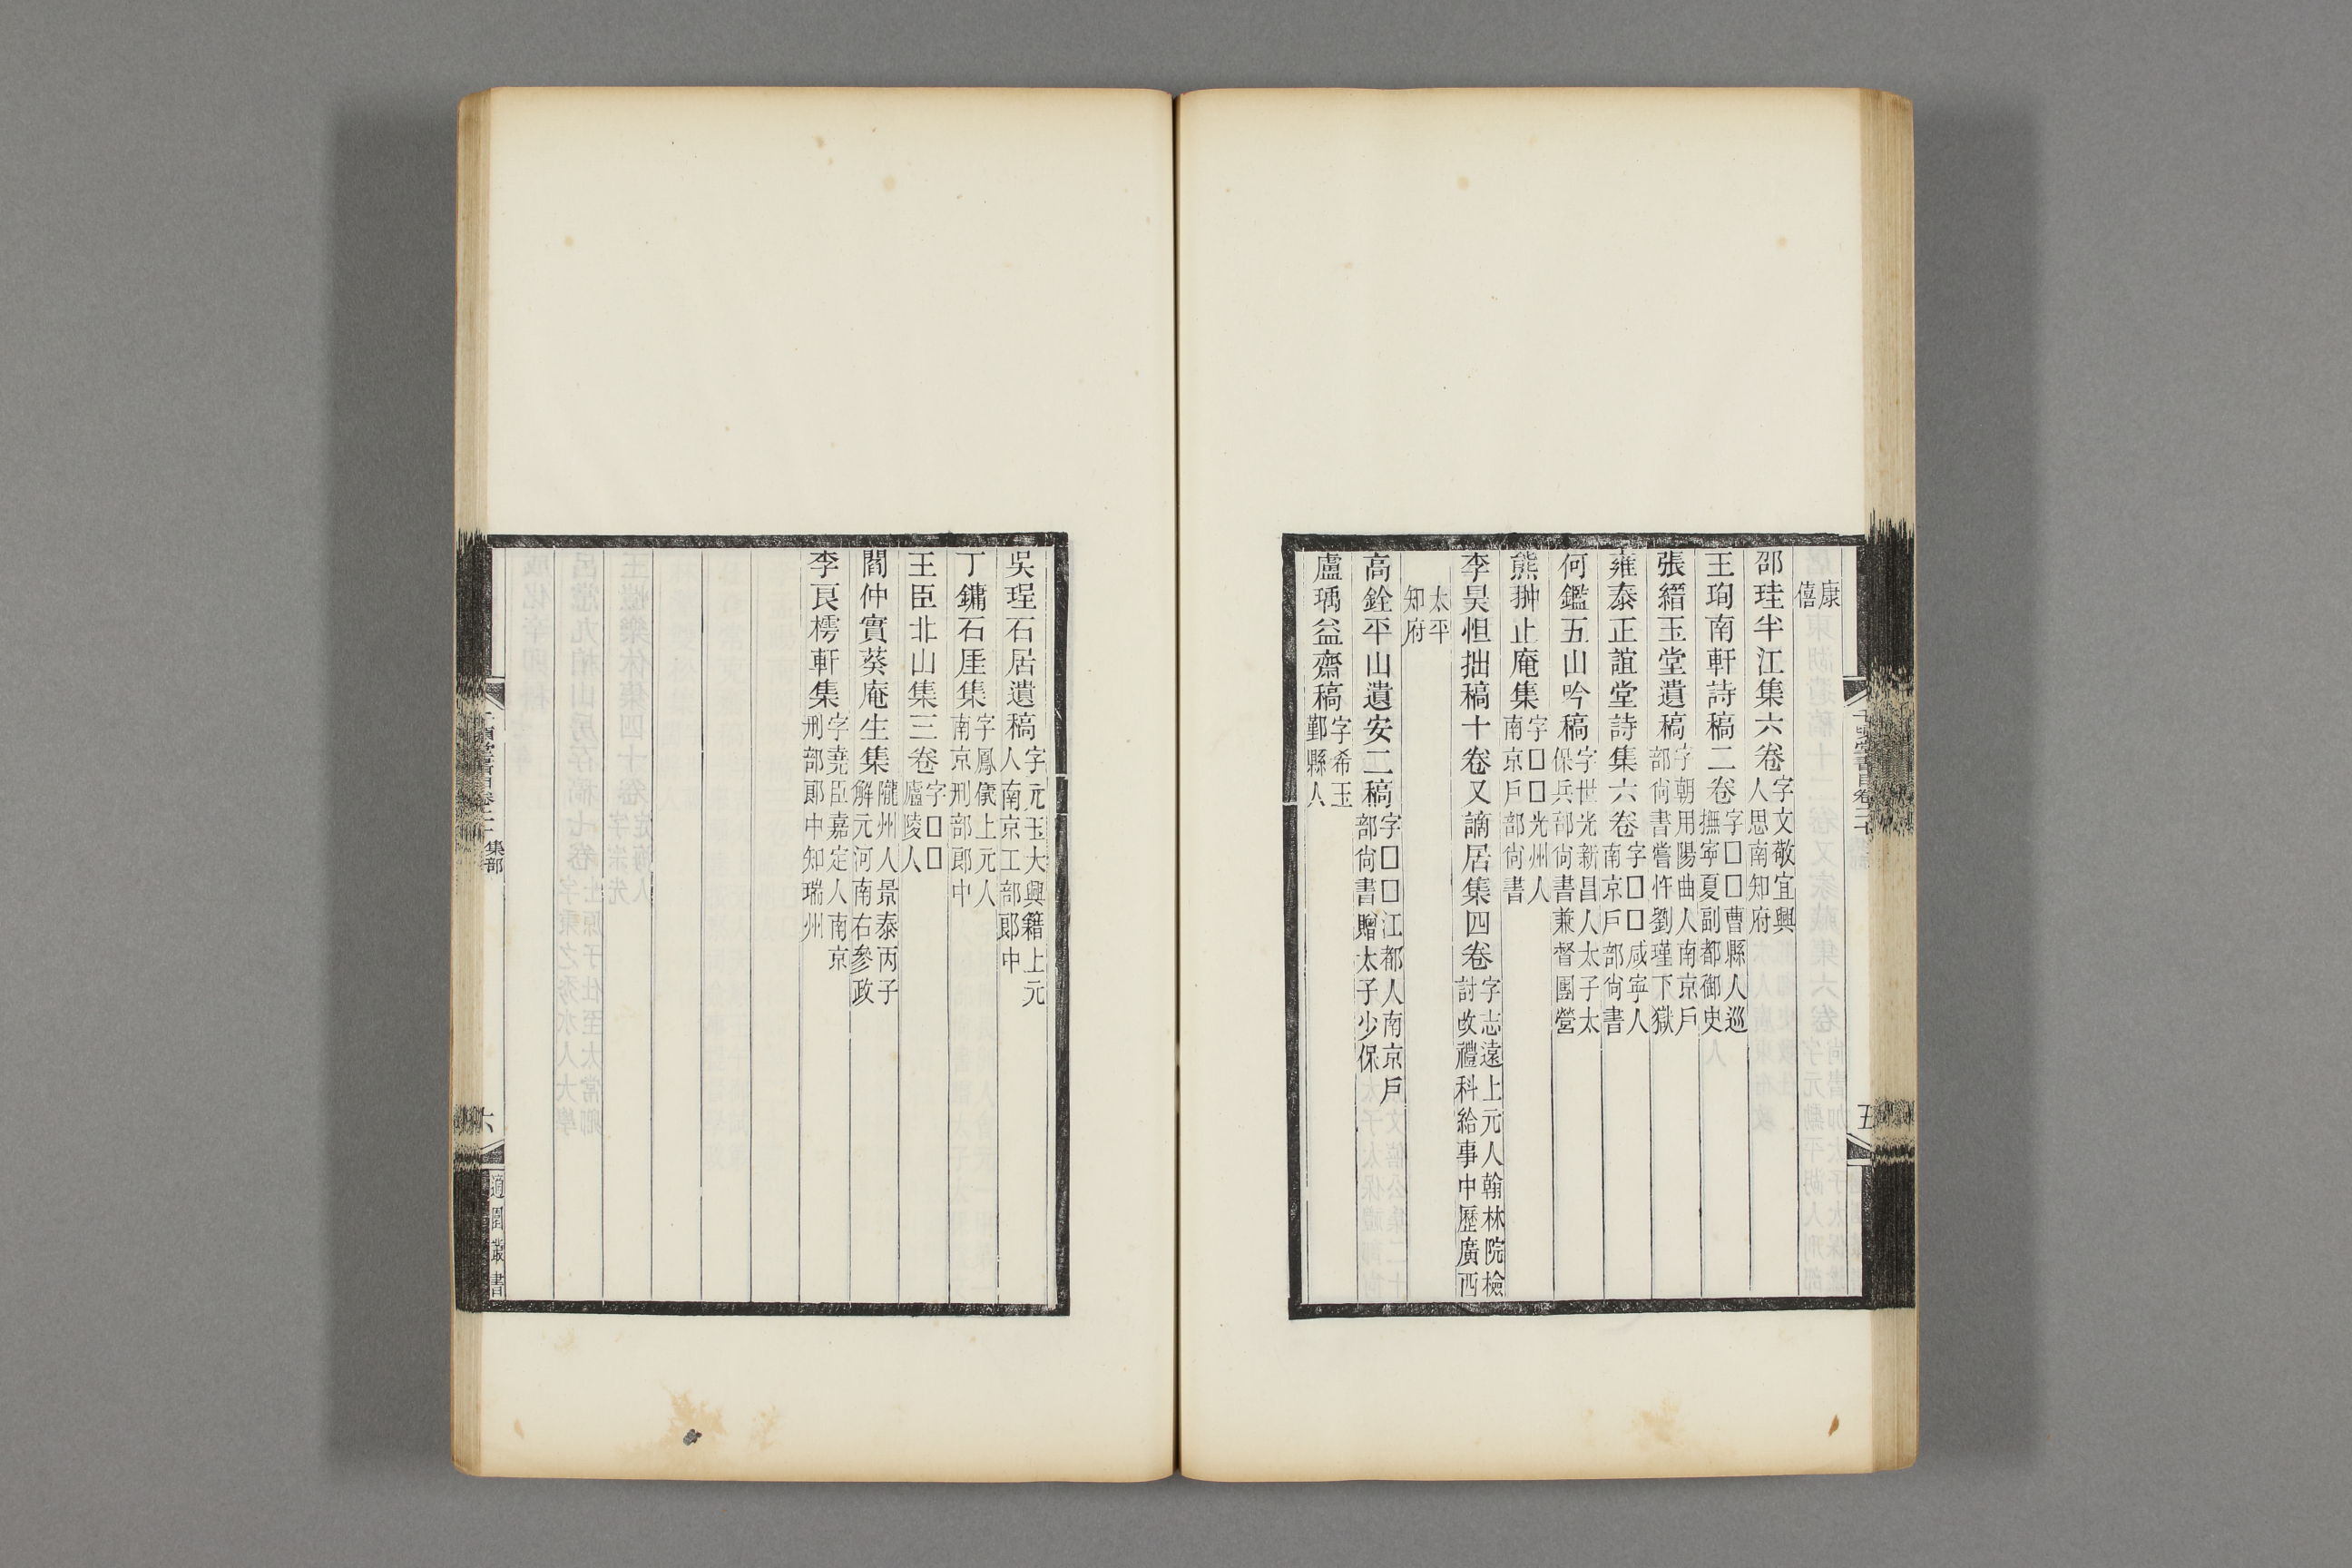 康
僖
邵珪半江集六卷字文敬宜興
人思南知府
王珣南軒詩稿二卷字□□曹縣人巡
撫寧夏副都御史
張縉玉堂遺稿字朝用陽曲人南京戶
部尙書嘗忤劉瑾下獄
雍泰正誼堂詩集六卷字□□咸寧人
南京戶部尙書
何鑑五山吟稿字世光新昌人太子太
保兵部尙書兼督團營
熊翀止庵集字□□光州人
南京戶部尙書
李昊怛拙稿十卷又謫居集四卷字志遠上元人翰林院檢
討改禮科給事中歷廣西
太平
知府
高銓平山遺安二稿字□□江都人南京戶
部尙書贈太子少保
盧瑀益齋稿字希玉
鄞縣人
五
吳珵石居遺稿字元玉大興籍上元
人南京工部郞中
丁鏞石厓集字鳳儀上元人
南京刑部郞中
王臣北山集三卷字□□
廬陵人
閻仲實葵庵生集隴州人景泰丙子
解元河南右參政
李良樗軒集字堯臣嘉定人南京
刑部郞中知瑞州
集部
六
適園叢書